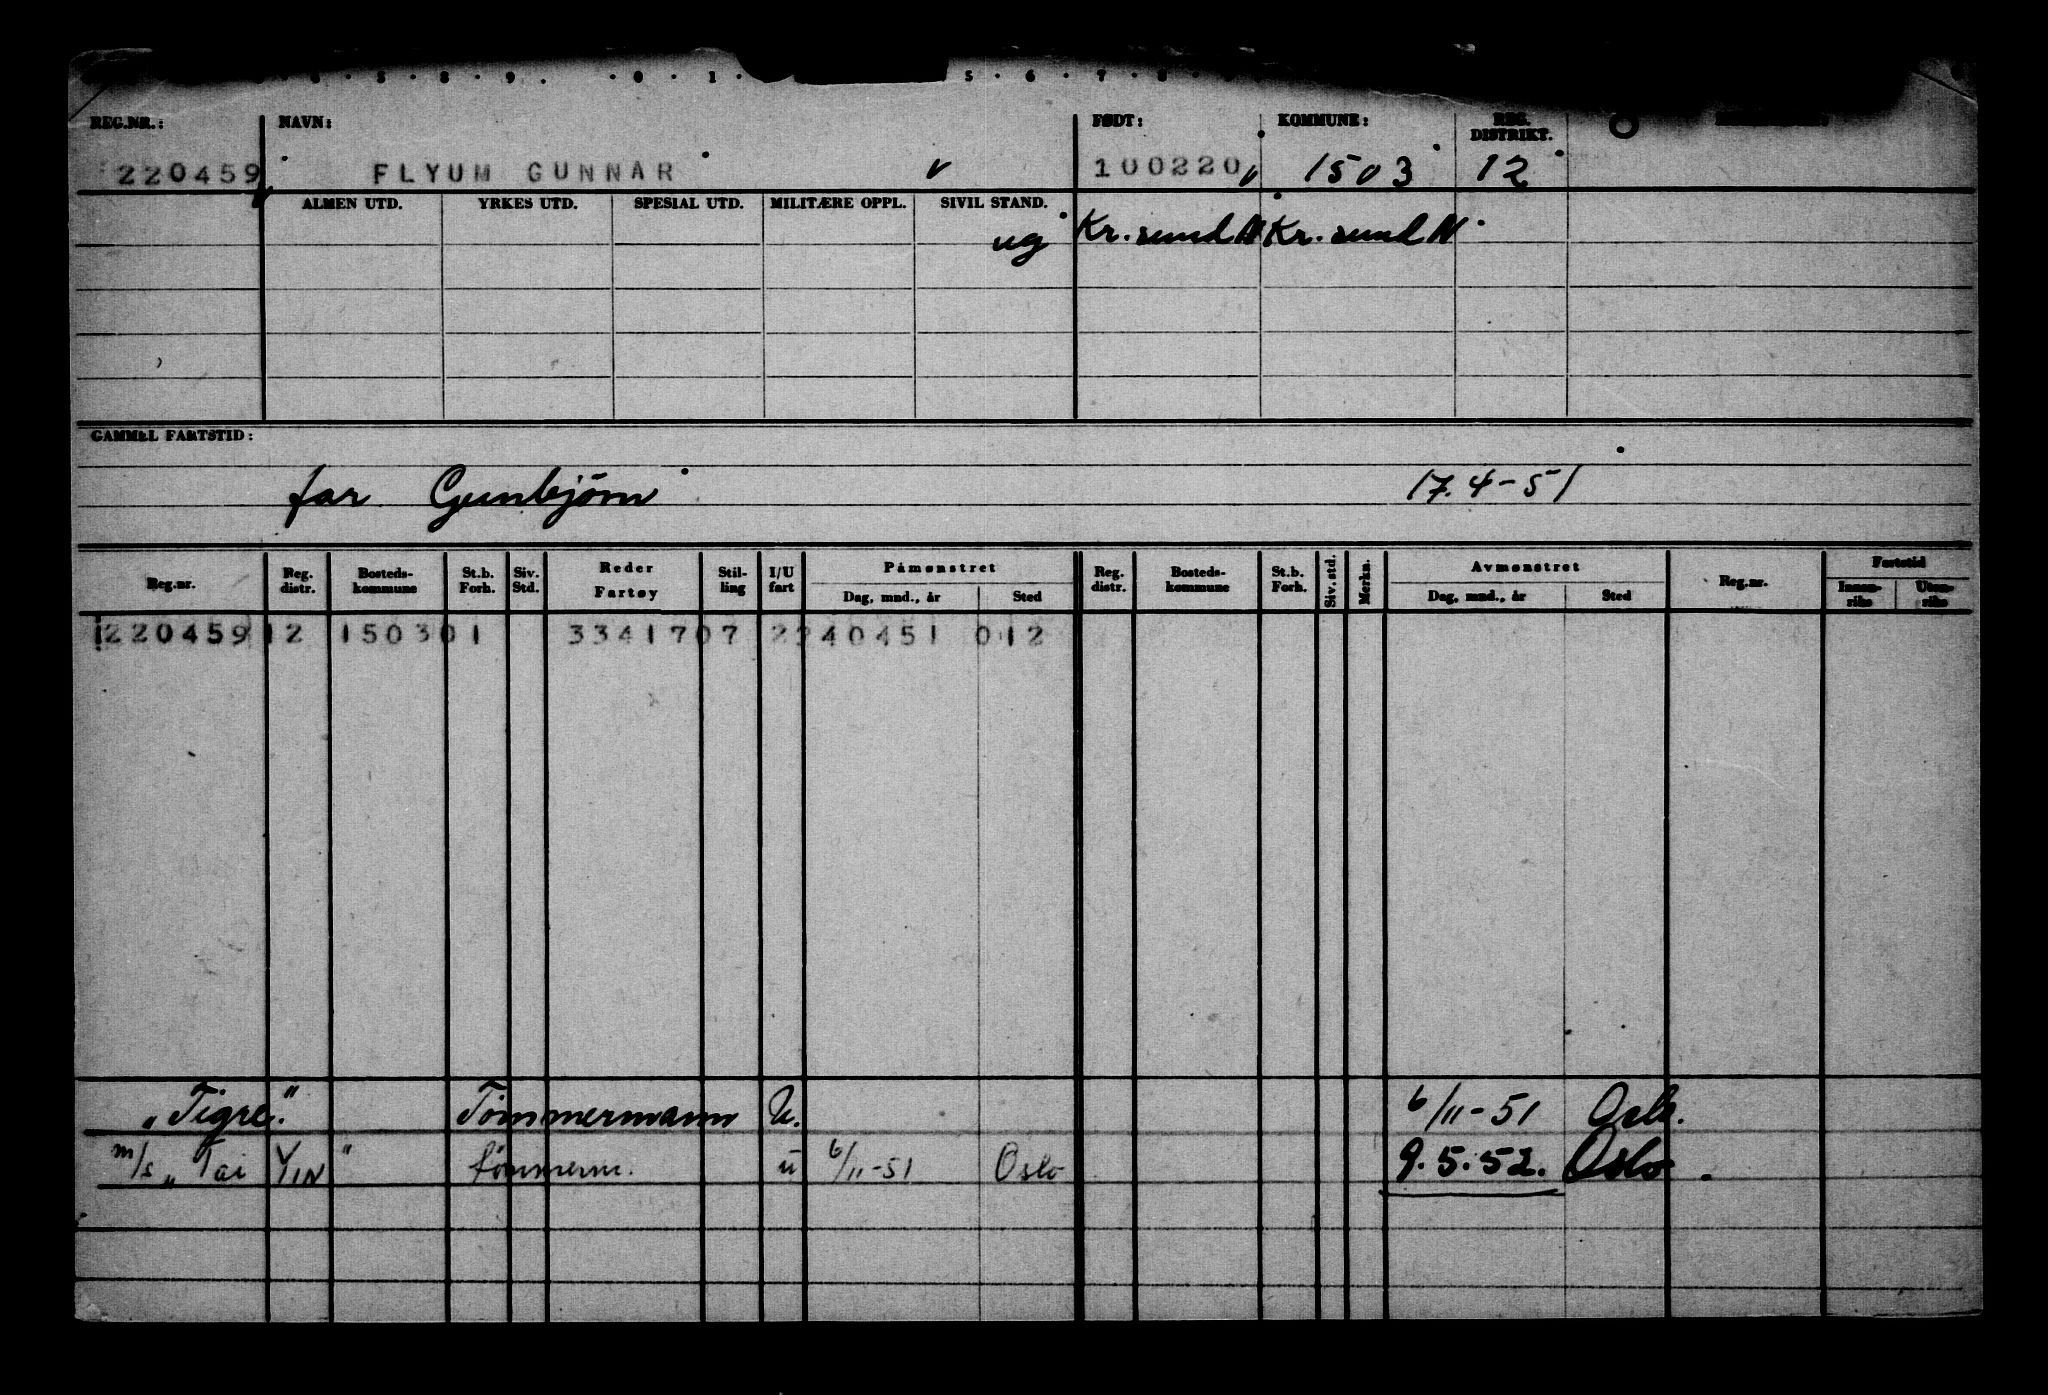 4 . 5 . 8 . 9 . . 0 . 1 . 5 . 6 . 7 . 8 .
REG.NR.: NAVN: FØDT: KOMMUNE: REG. DISTRIKT.
220459 FLYUM GUNNAR 100220 1503 12
ALMEN UTD. YRKES UTD. SPESIAL UTD. MILITÆRE OPPL. SIVIL STAND.
ug Kr.sund N Kr.sund N
GAMMEL FARTSTID:
far Gunbjörn 17.4-51
Reg.nr. Reg. distr. Bosteds- kommune St.b. Forh. Siv. Std. Reder Fartøy Stil- ling I/U fart Påmønstret Dag, mnd., år Sted Reg. distr. Bosteds- kommune St.b. Forh. Siv. std. Merkn. Avmønstret Dag, mnd., år Sted Reg.nr. Fartstid Innen- riks Uten- riks
220459 12 1503 01 334170 7 2 240451 012
"Tigre" Tömmermann U. 6/11-51 Oslo.
m/s "Tai Yin" tömmerm. u 6/11-51 Oslo 9.5.52. Oslo.